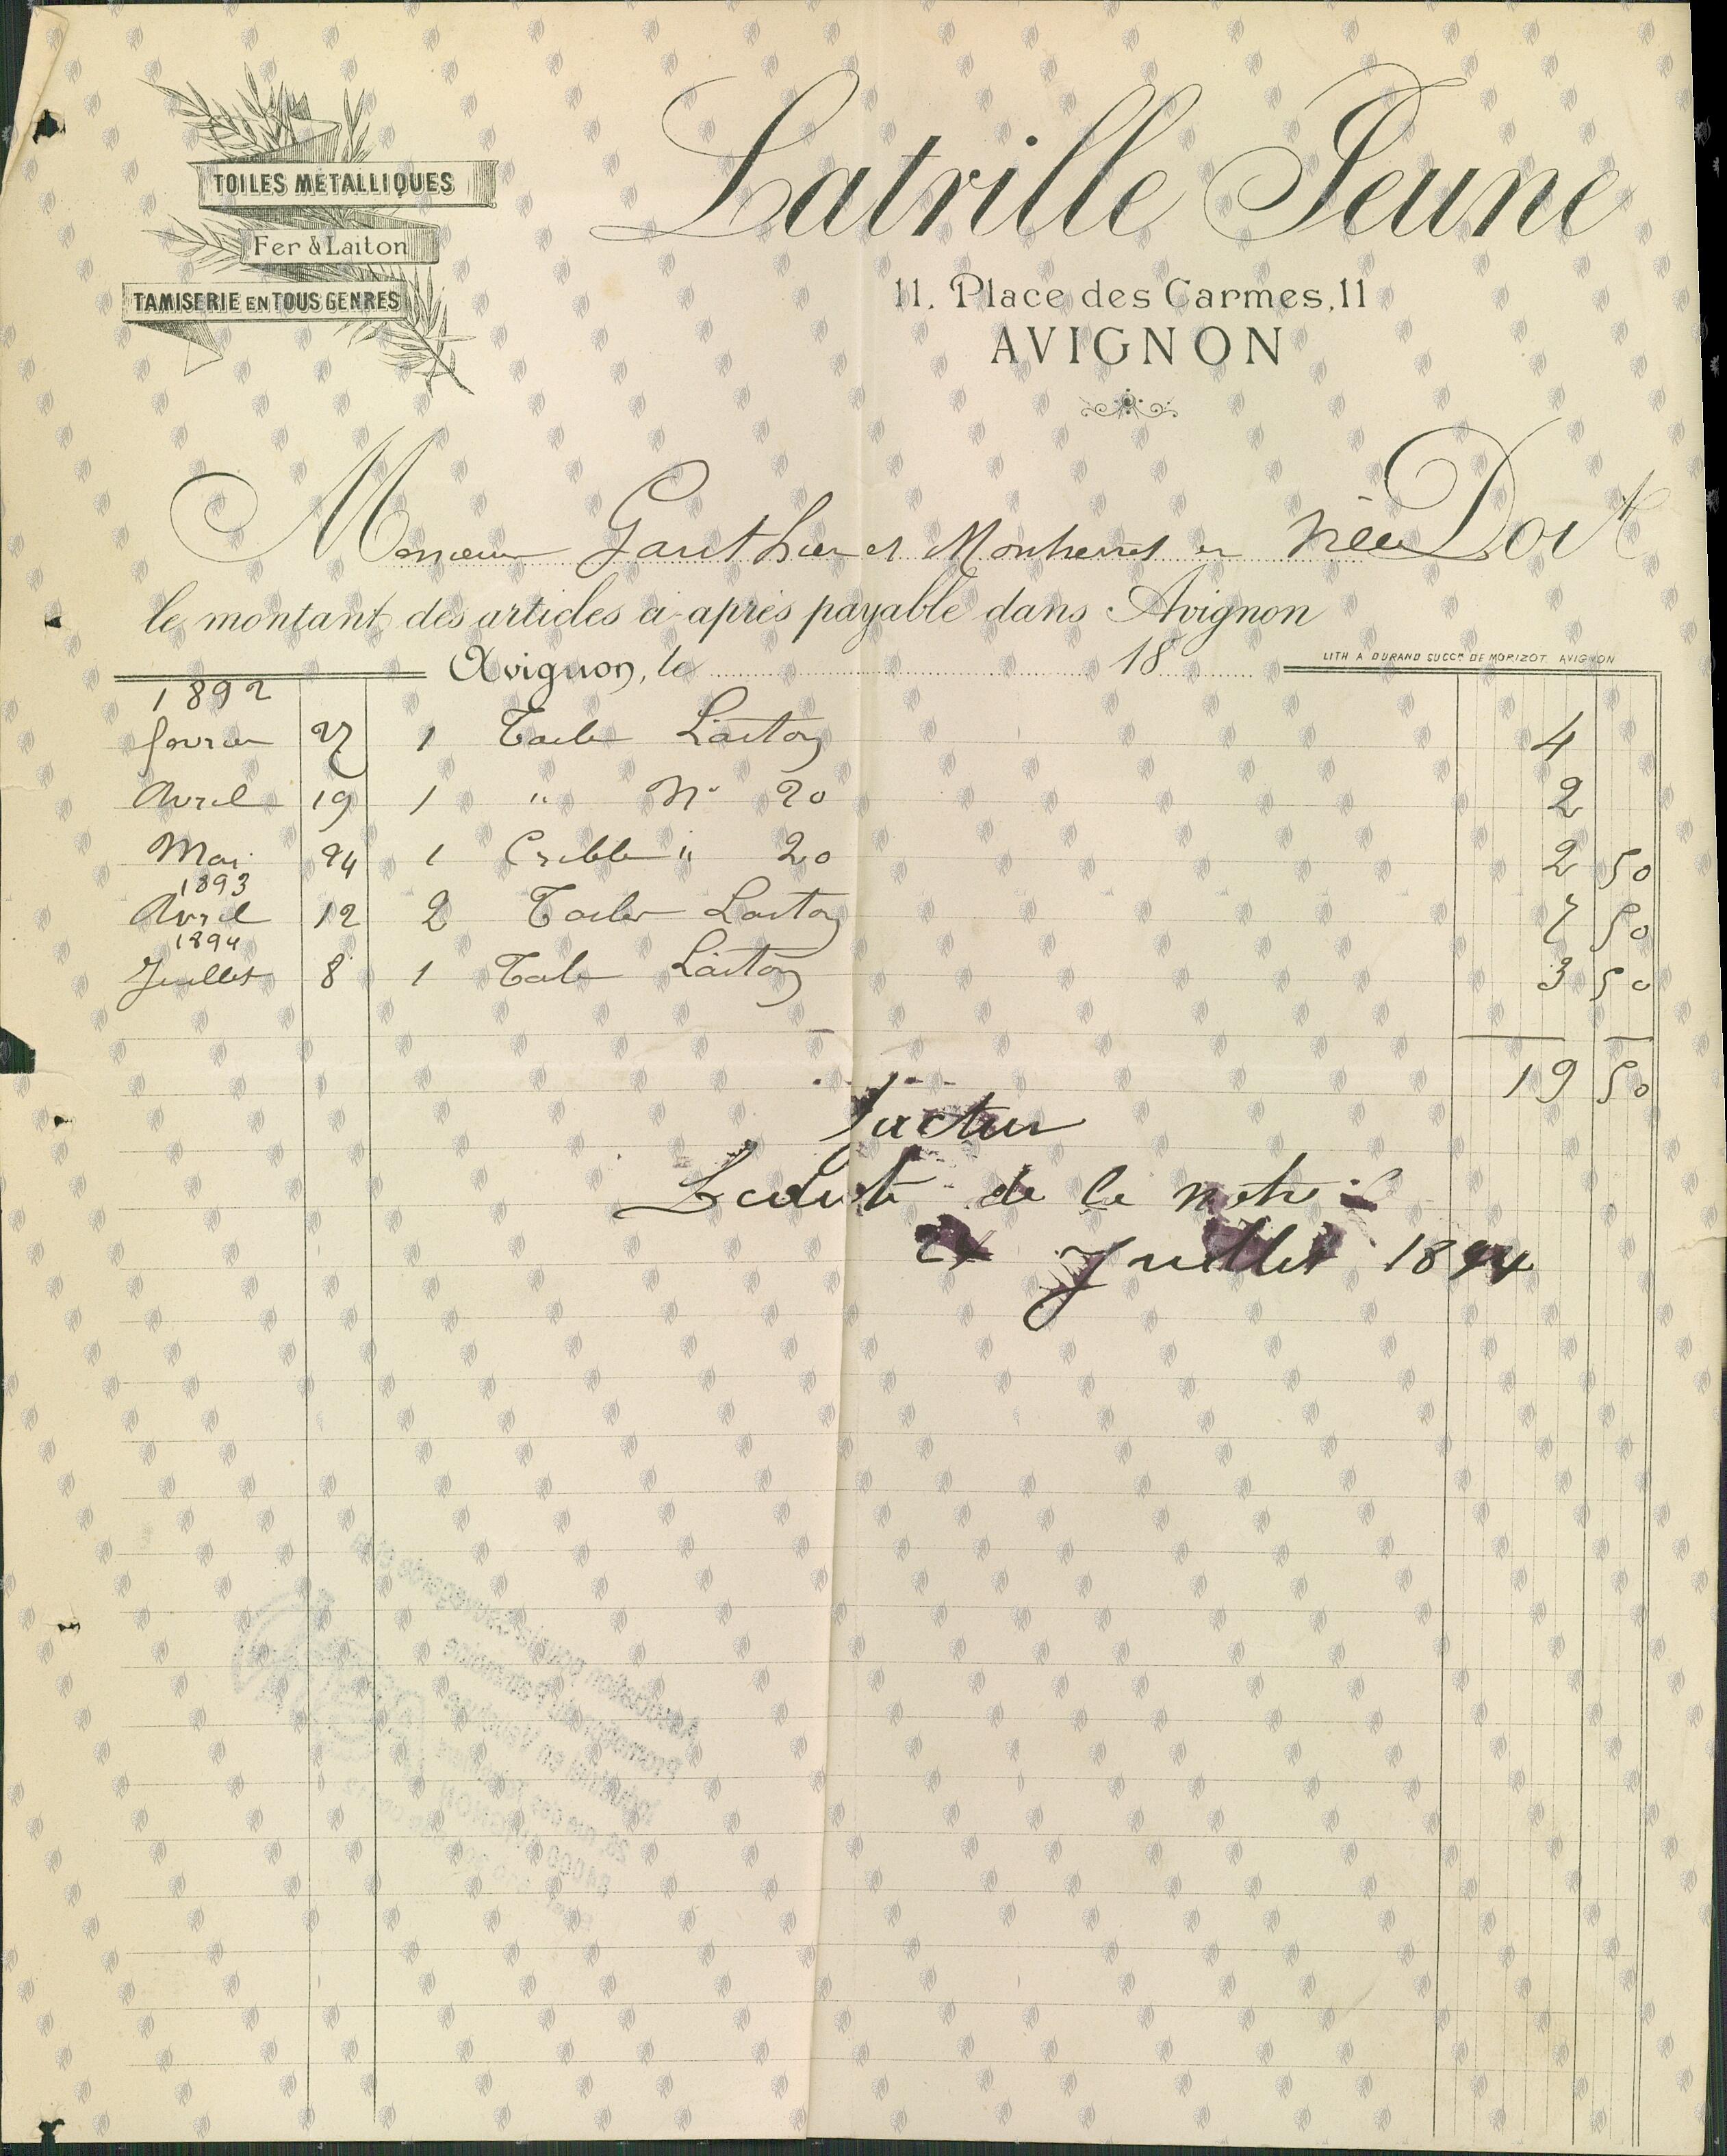 TOILES METALLIQUES
Fer & Laiton
TAMISERIE EN TOUS GENRES
Latrille Jeune
11, Place des Carmes, 11
AVIGNON
Monsieur Gauthier et en Doit
le montant des articles ci-après payable dans Avignon
Avignon, le 18
LITH A DURAND SUCCR DE MORIZOT AVIGNON
1892
fevrier 27 1 Laiton 4
Avril 19 1 " No 20 2
Mai 24 1 Crible " 20 2 50
1893
Avril 12 2 Laiton 7 50
1894
Juillet 8 1 Laiton 3 50
19 50
de la
Juillet 1894